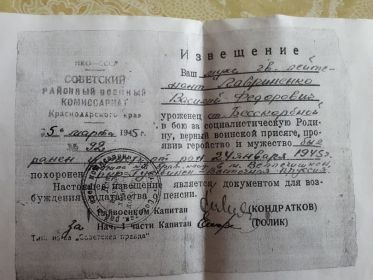 НКО—СССР
СОВЕТСКИЙ
РАЙОННЫЙ ВОЕННЫЙ
КОМИССАРИАТ
Краснодарского края
5" марта 1945 г.
№ 92
Извещение
Ваш муж гв. лейте-
нант Лавриненко
Василий Федорович
уроженец ст. Бесскорбной
в бою за социалистическую Роди-
ну, верный воинской присяге, про-
явив геройство и мужество был
ранен 24 января 1945 г.
похоронен Восточная Пруссия
Настоящее извещение является документом для воз-
буждения ходатайства о пенсии.
Райвоенком Капитан (КОНДРАТКОВ)
За Нач. 4 части Капитан (ТОЛИК)
"Советская правда"